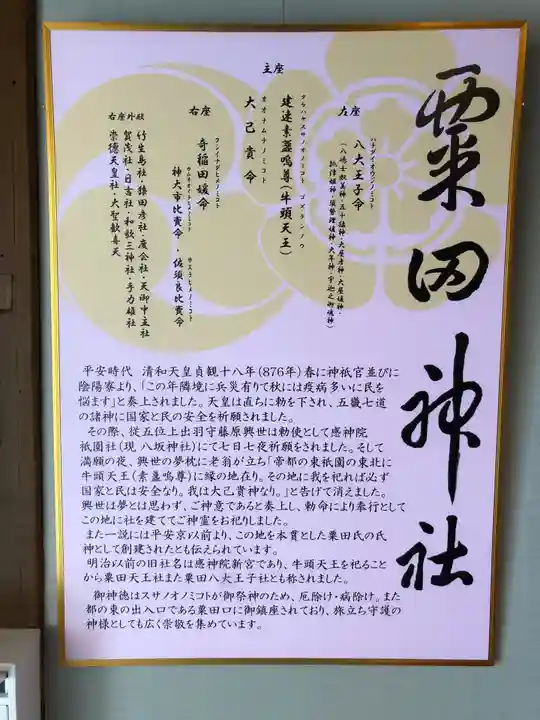 粟田神社
主座
タケハヤスサノオノミコト ゴズテンノウ
建速素盞嗚尊(牛頭天王)
オオナムチノミコト
大己貴命
左座
ハチダイオウジノミコト
八大王子命
(八嶋士奴美神・五十猛神・大屋彦神・大屋媛神・
抓津媛神・須勢理媛神・大年神・宇迦之御魂神)
右座
クシイナダヒメノミコト
奇稲田媛命
カムオオイチヒメノミコト サスラヒメノミコト
神大市比賣命・佐須良比賣命
右座外殿
竹生島社・猿田彦社・度会社・天御中主社
賀茂社・日吉社・和歌三神社・手力雄社
崇徳天皇社・大聖歓喜天
平安時代 清和天皇貞観十八年(876年)春に神祇官並びに
陰陽寮より、「この年隣境に兵災有りて秋には疫病多いに民を
悩ます」と奏上されました。天皇は直ちに勅を下され、五畿七道
の諸神に国家と民の安全を祈願されました。
その際、従五位上出羽守藤原興世は勅使として感神院
祇園社(現 八坂神社)にて七日七夜祈願をされました。そして
満願の夜、興世の夢枕に老翁が立ち「帝都の東祇園の東北に
牛頭天王(素盞嗚尊)に縁の地在り。その地に我を祀れば必ず
国家と民は安全なり。我は大己貴神なり。」と告げて消えました。
興世は夢とは思わず、ご神意であると奏上し、勅命により奉行として
この地に社を建ててご神霊をお祀りしました。
また一説には平安京以前より、この地を本貫とした粟田氏の氏
神として創建されたとも伝えられています。
明治以前の旧社名は感神院新宮であり、牛頭天王を祀ること
から粟田天王社また粟田八大王子社とも称されました。
御神徳はスサノオノミコトが御祭神のため、厄除け・病除け。また
都の東の出入口である粟田口に御鎮座されており、旅立ち守護の
神様としても広く崇敬を集めています。